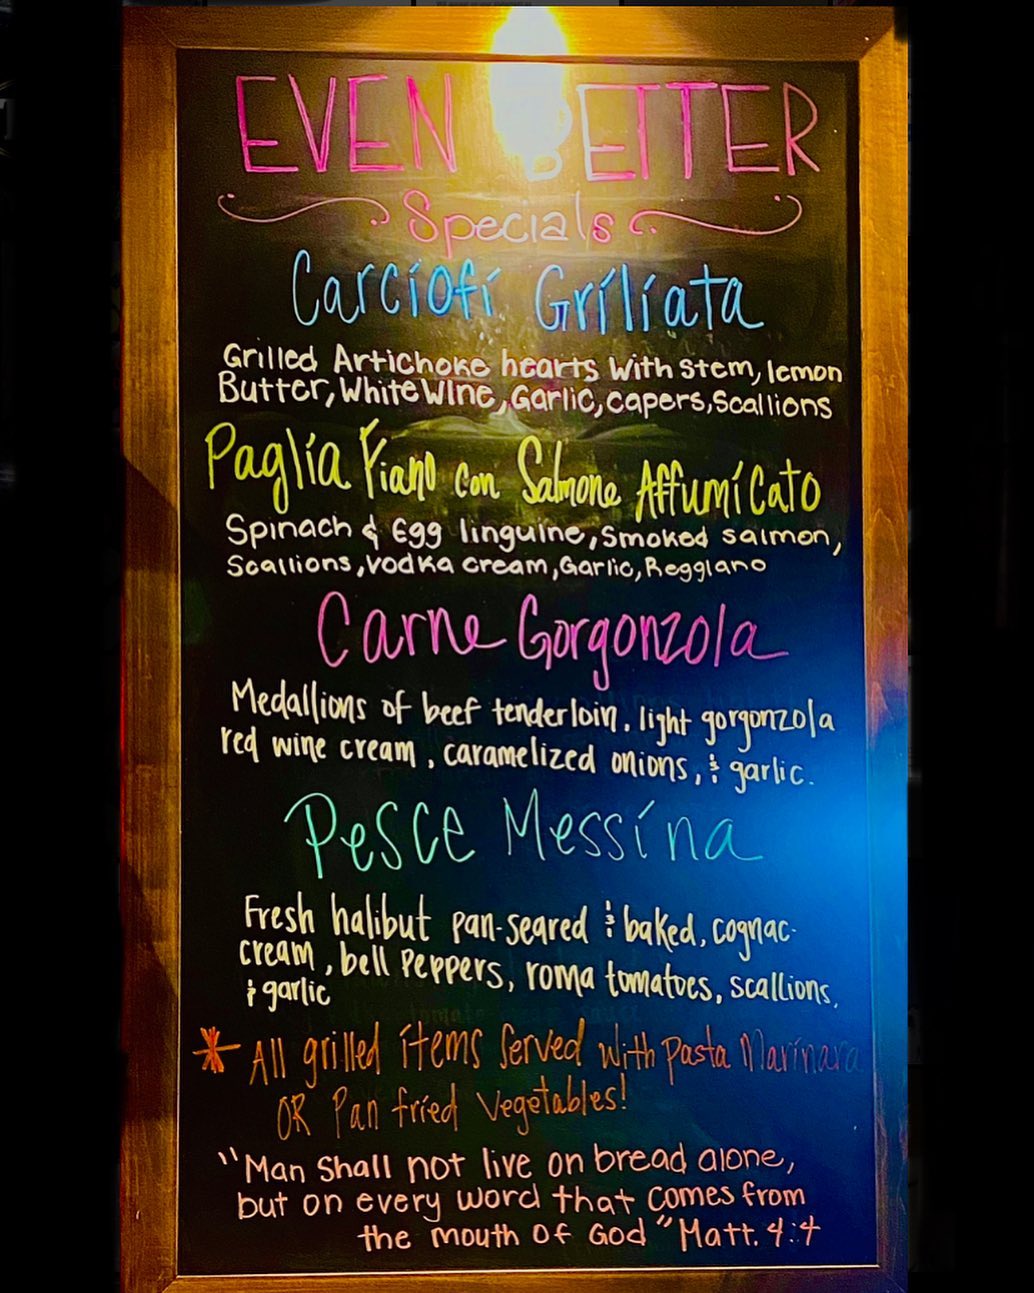 EVEN BETTER
Specials
Carciofi Griliata
Grilled Artichoke hearts with stem, lemon
Butter, White Wine, Garlic, capers, Scallions
Paglia Fiano con Salmone Affumicato
Spinach & Egg linguine, Smoked salmon,
Scallions, Vodka cream, Garlic, Reggiano
Carne Gorgonzola
Medallions of beef tenderloin, light gorgonzola
red wine cream, caramelized onions, & garlic.
Pesce Messina
Fresh halibut pan-seared & baked, cognac-
cream, bell peppers, roma tomatoes, scallions,
& garlic
* All grilled items served with pasta Marinara
OR Pan fried vegetables!
"Man Shall not live on bread alone,
but on every word that comes from
the mouth of God" Matt. 4:4